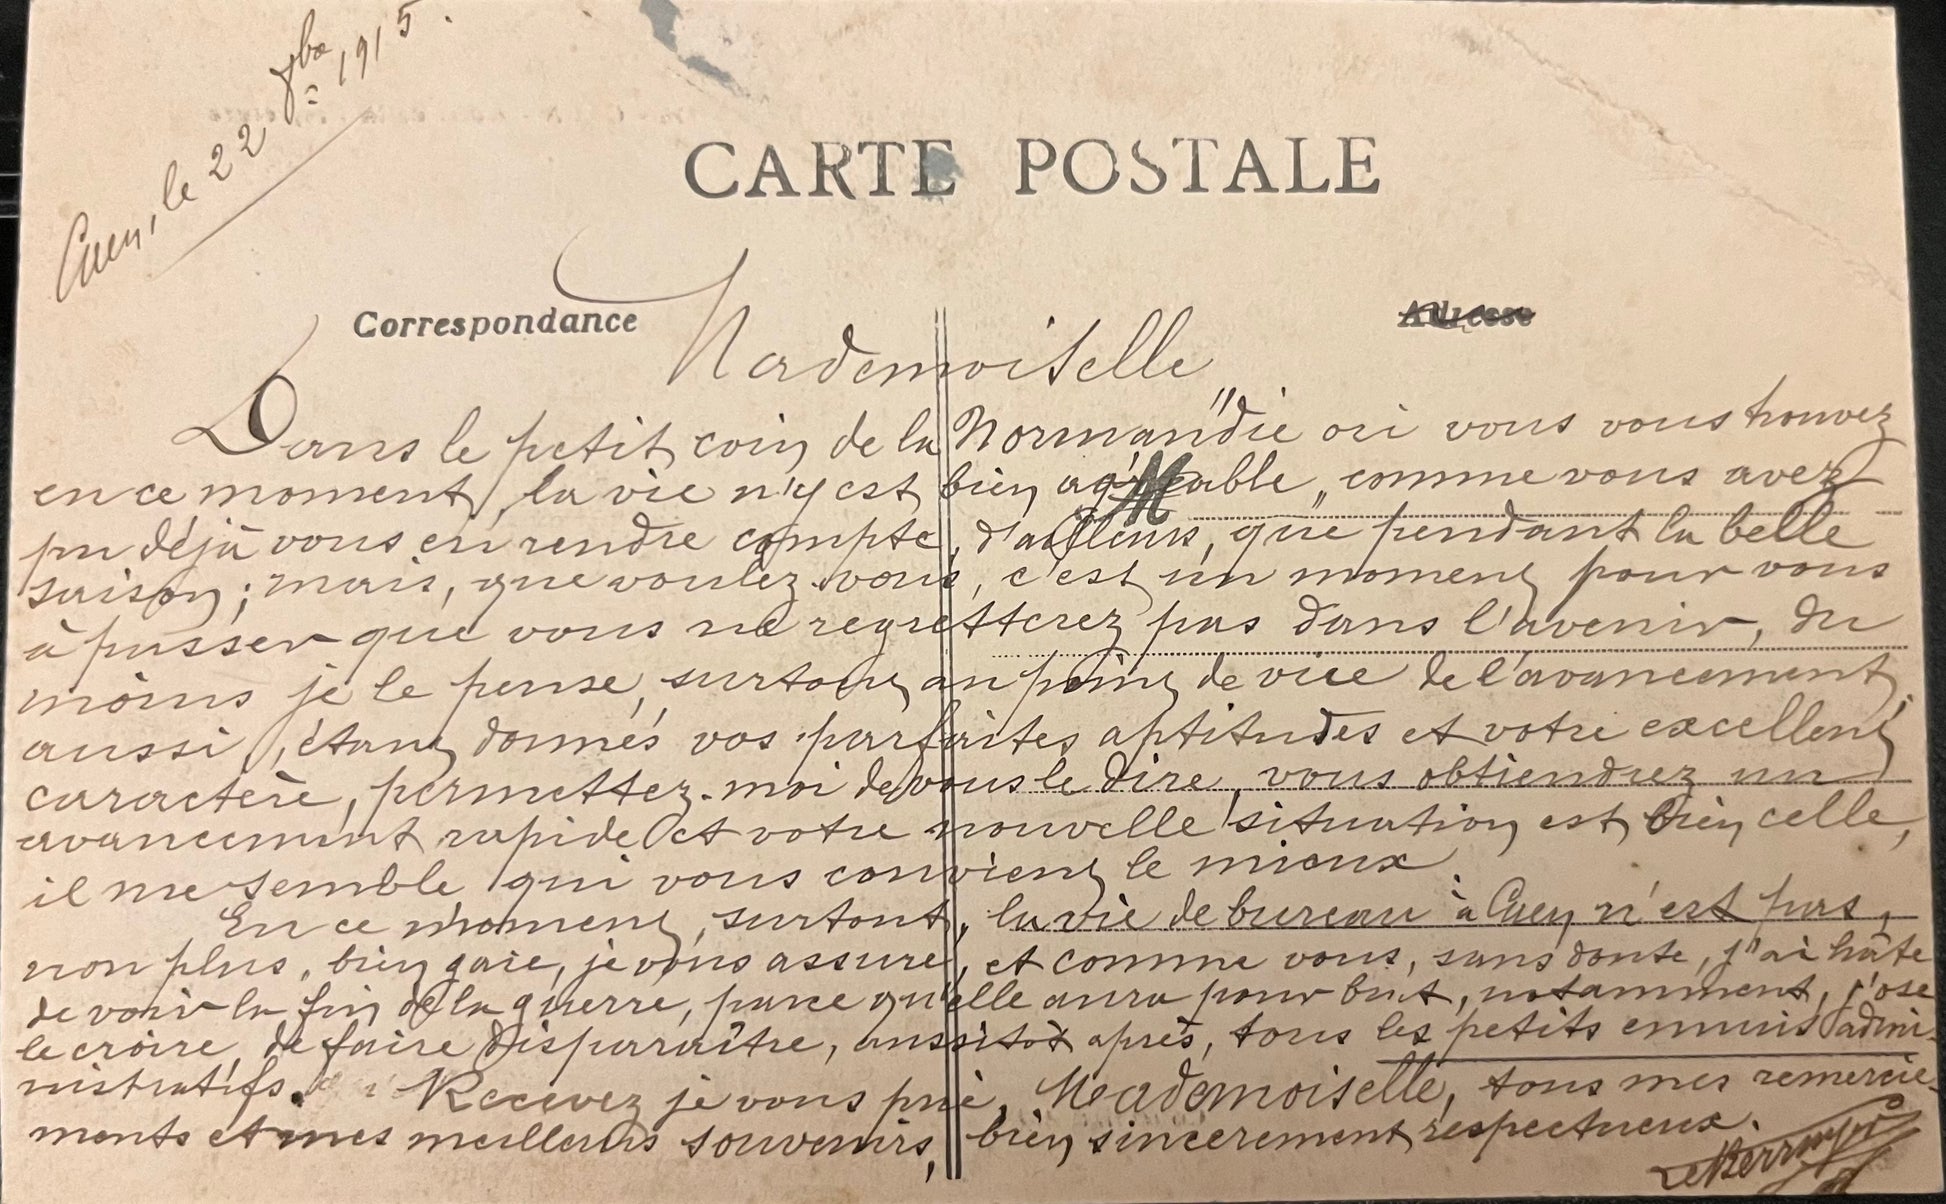 Caen, le 22 9bre 1915.
CARTE POSTALE
Correspondance
Adresse
Mademoiselle
Dans le petit coin de la "Normandie où vous vous trouvez
en ce moment, la vie n'y est bien agréable, comme vous avez
pu déjà vous en rendre compte, d'ailleurs, que pendant la belle
saison; mais, que voulez-vous, c'est un moment pour vous
à passer que vous ne regretterez pas dans l'avenir, du
moins je le pense, surtout au point de vue de l'avancement,
aussi, étant donnés vos parfaites aptitudes et votre excellent
caractère, permettez-moi de vous le dire, vous obtiendrez un
avancement rapide et votre nouvelle situation est bien celle,
il me semble qui vous convient le mieux.
En ce moment, surtout, la vie de bureau à Caen n'est pas,
non plus, bien gaie, je vous assure, et comme vous, sans doute, j'ai hâte
de voir la fin de la guerre, parce qu'elle aura pour but, notamment, j'ose
le croire, de faire disparaître, aussitôt après, tous les petits ennuis admi-
nistratifs. Recevez je vous prie, Mademoiselle, tous mes remercie-
ments et mes meilleurs souvenirs, bien sincèrement respectueux.